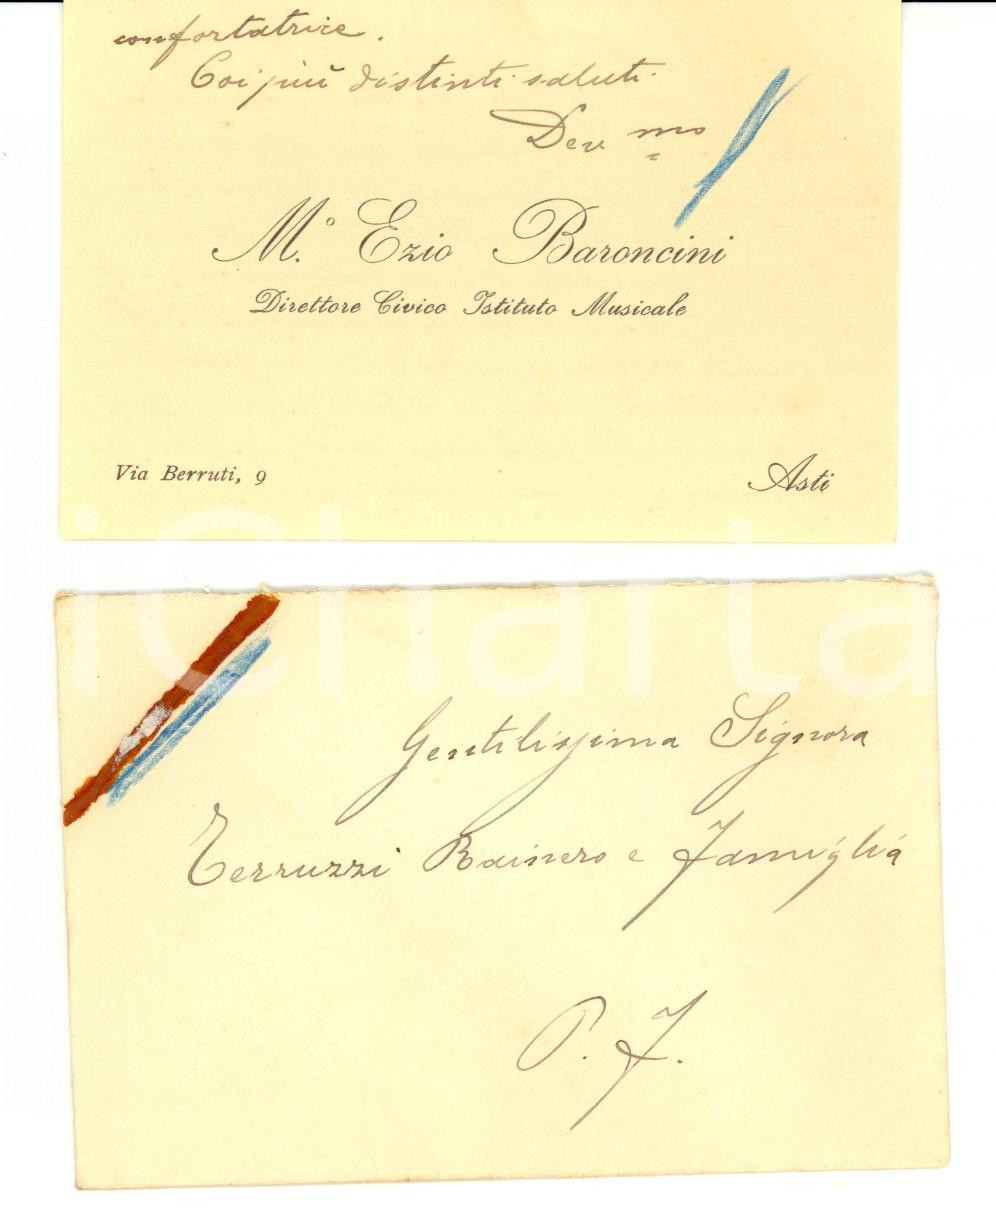 confortatrice.
Coi più distinti saluti.
Dev mo
M.° Ezio Baroncini
Direttore Civico Istituto Musicale
Via Berruti, 9
Asti
iCharta
Gentilissima Signora
Terruzzi Rainero e Famiglia
P. F.